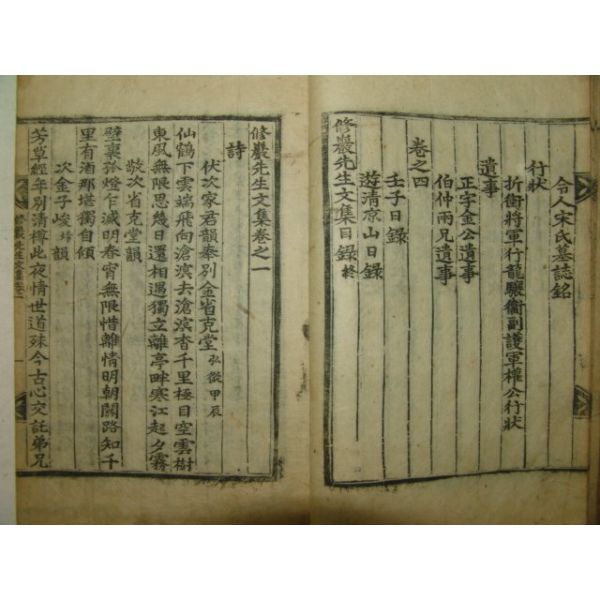 令人宋氏墓誌銘
行狀
折衝將軍行龍驤衛副護軍權公行狀
遺事
正字金公遺事
伯仲兩兄遺事
卷之四
壬子日錄
遊清凉山日錄
修巖先生文集目錄終
修巖先生文集卷之一
詩
伏次家君韻奉別金省克堂弘微甲辰
仙鶴下雲端飛向滄溟去滄溟杳千里極目空雲樹
東風無限思幾日還相遇獨立離亭畔寒江起夕霧
敬次省克堂韻
壁裏孤燈乍滅明春宵無限惜離情明朝關路知千
里有酒那堪獨自傾
次金子峻韻
芳草經年別清樽此夜情世道殊今古心交託弟兄
修巖先生文集卷一
一